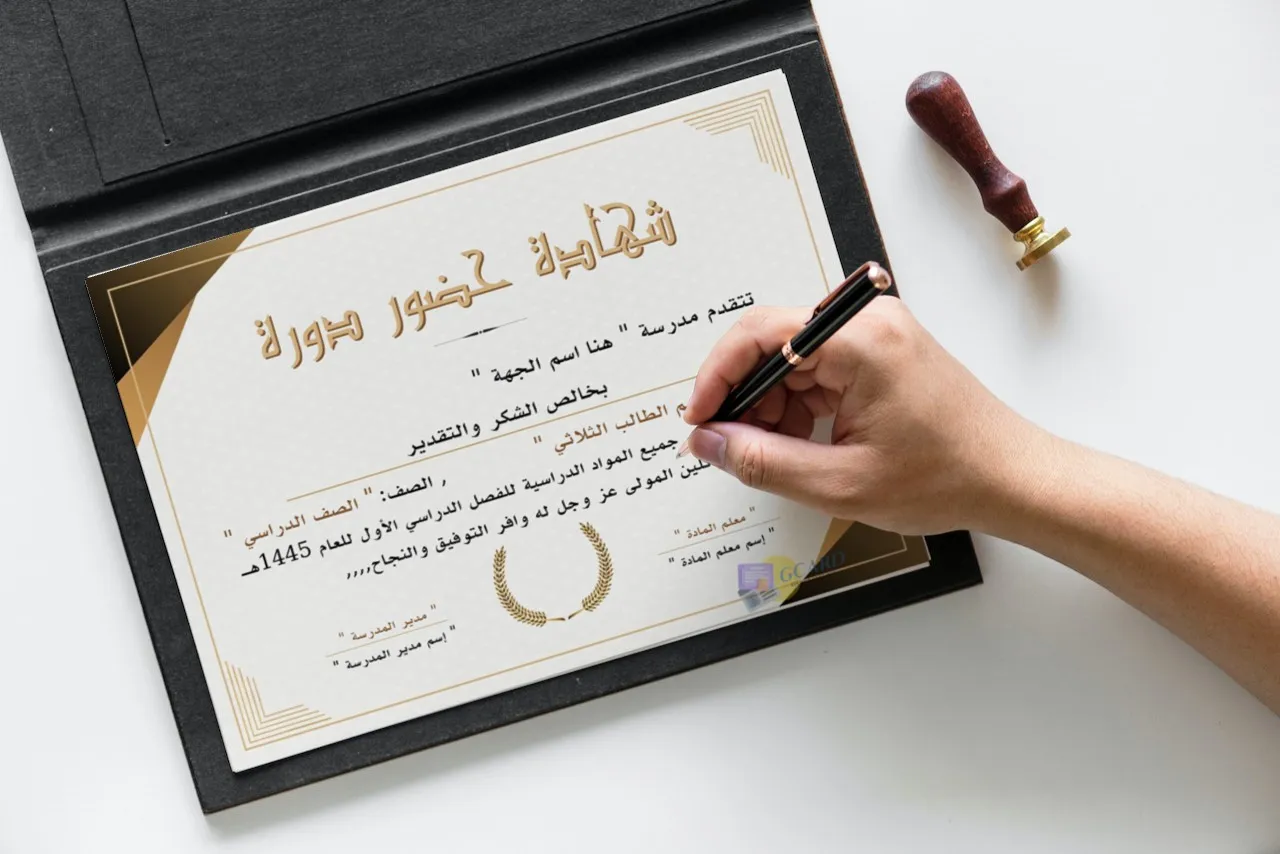 شهادة حضور دورة
تتقدم مدرسة " هنا اسم الجهة "
بخالص الشكر والتقدير
الطالب الثلاثي "
, الصف: " الصف الدراسي "
جميع المواد الدراسية للفصل الدراسي الأول للعام 1445هـ
المولى عز وجل له وافر التوفيق والنجاح,,,,
" معلم المادة "
" إسم معلم المادة "
" مدير المدرسة "
" إسم مدير المدرسة "
GCARD